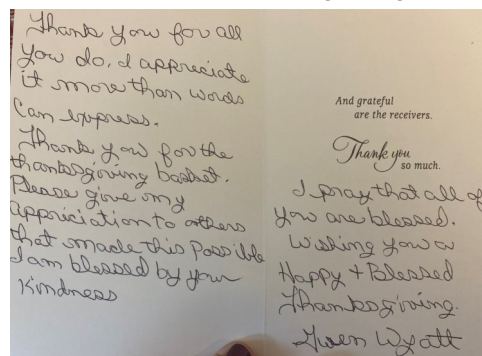 Thank you for all
you do, I appreciate
it more than words
Can express.
Thank you for the
thanksgiving basket.
Please give my
appriciation to others
that made this possible
I am blessed by your
Kindness
And grateful
are the receivers.
Thank you
so much.
I pray that all of
you are blessed.
Wishing you a
Happy + Blessed
Thanksgiving.
Gwen Wyatt